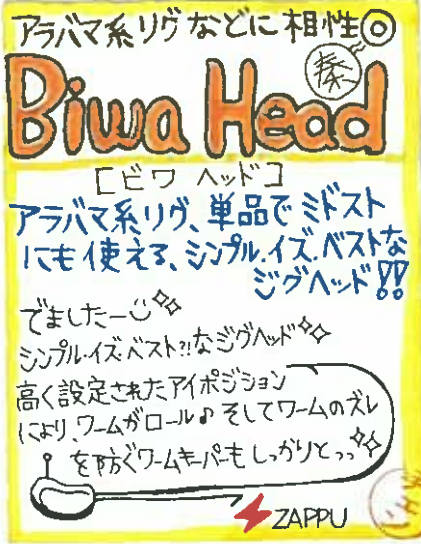 アラバマ系リグなどに相性◎
Biwa Head
[ビワ ヘッド]
アラバマ系リグ、単品でミドスト
にも使える、シンプル.イズ.ベストな
ジグヘッド!!
でましたー
シンプル・イズ・ベスト?!なジグヘッド
高く設定されたアイポジション
により、ワームがロール♪ そしてワームのズレ
を防ぐワームキーパーもしっかりとっっ
ZAPPU